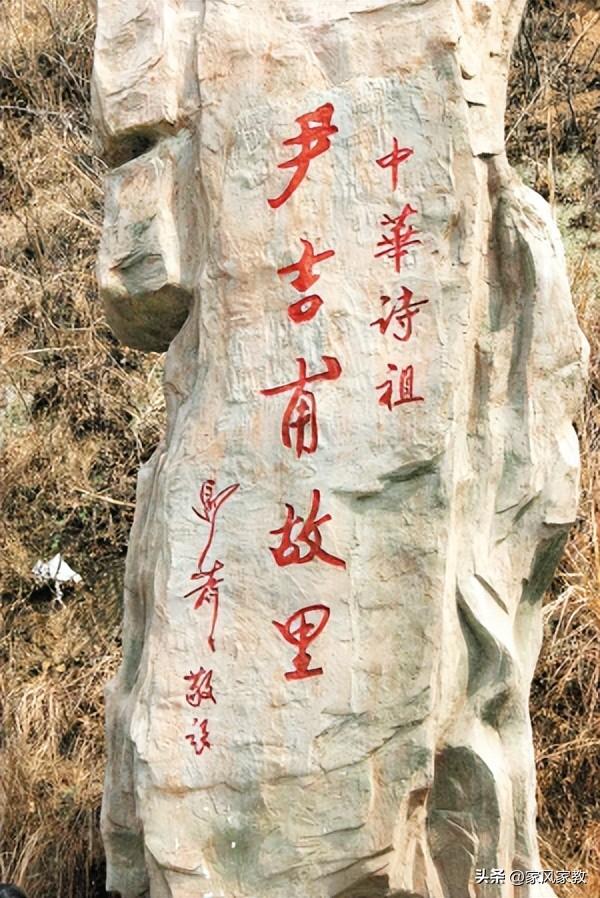 中華诗祖
尹吉甫故里
敬题
头条 @家风家教